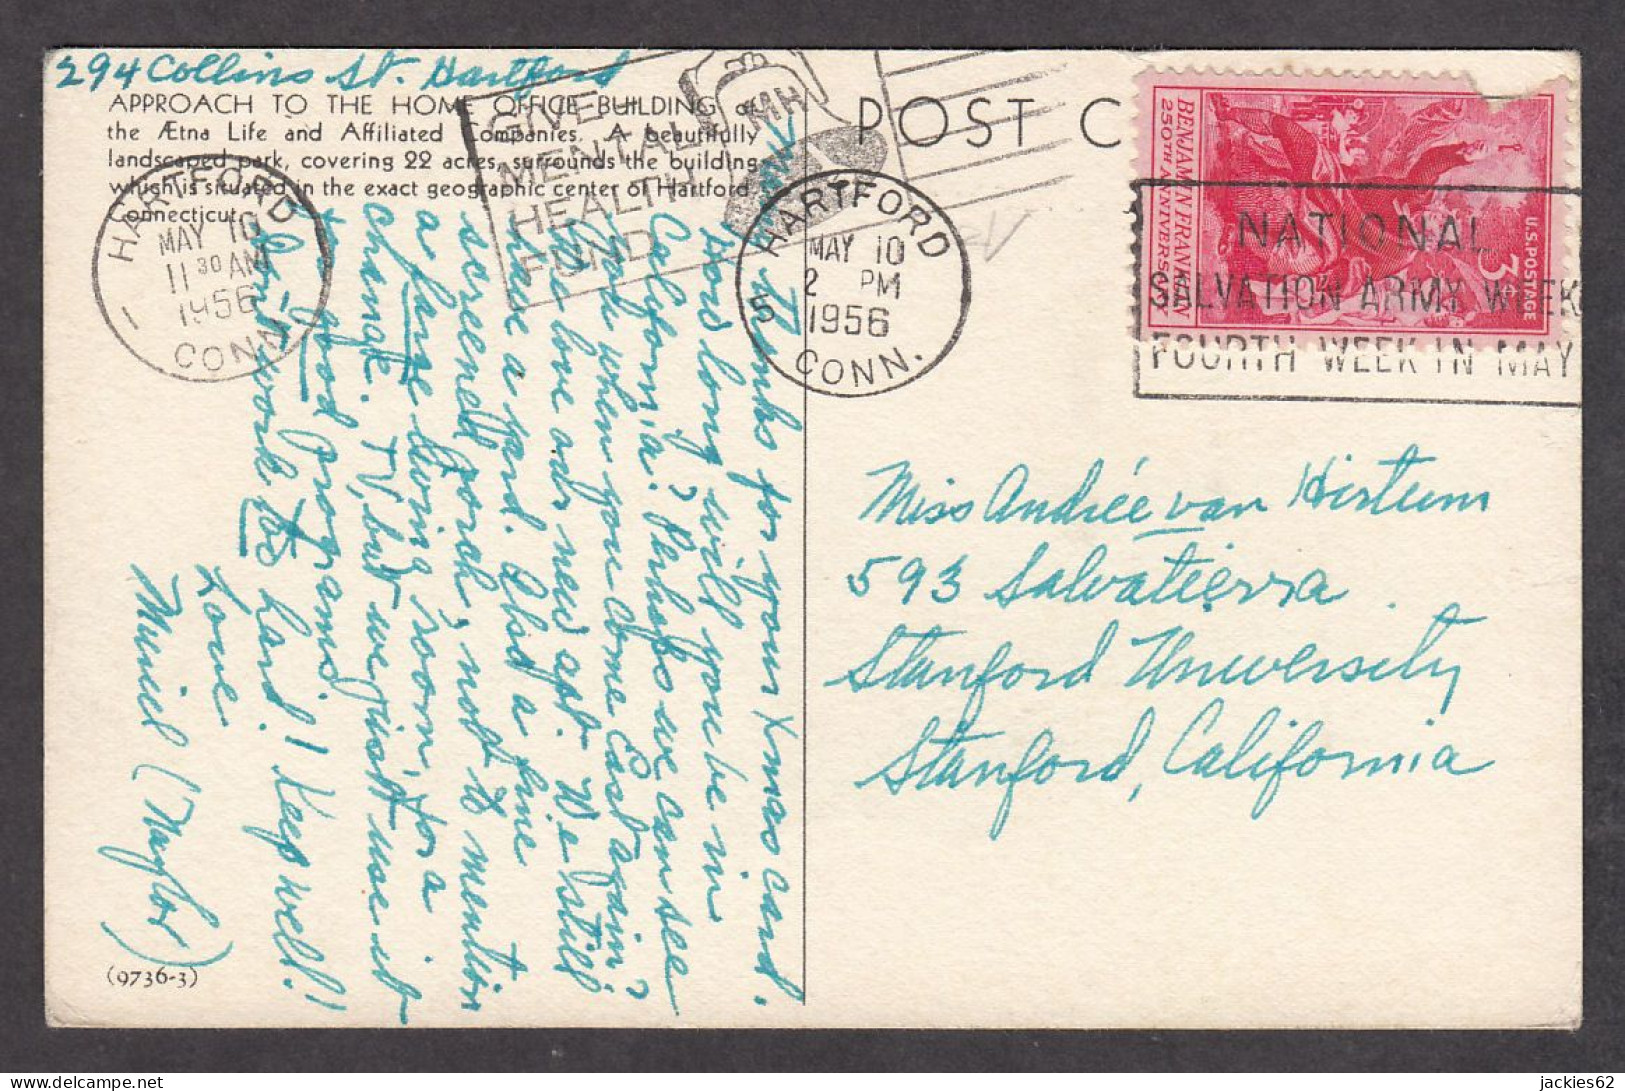 294 Collins St. Hartford
APPROACH TO THE HOME OFFICE BUILDING of
the Ætna Life and Affiliated Companies. A beautifully
landscaped park, covering 22 acres, surrounds the building
which is situated in the exact geographic center of Hartford,
Connecticut.
HARTFORD
MAY 10
11 30 AM
1956
CONN.
GIVE
MENTAL
HEALTH
FUND
MH
POST C
HARTFORD
MAY 10
2 PM
1956
CONN.
5
BENJAMIN FRANKLIN
250TH ANNIVERSARY
U.S. POSTAGE
3¢
NATIONAL
SALVATION ARMY WEEK
FOURTH WEEK IN MAY
Thanks for your Xmas card.
How long will you be in
California? Perhaps we can see
you when you come East again?
We love our new apt. We still
have a yard. Also a fine
screened porch, not to mention
a large living room, for a
change. TV, but we just use it
for good programs.
Don't work too hard! Keep well!
Love
Muriel (Naylor)
(9736-3)
Miss Andrée van Hirtum
593 Salvatierra
Stanford University
Stanford, California
jackies62